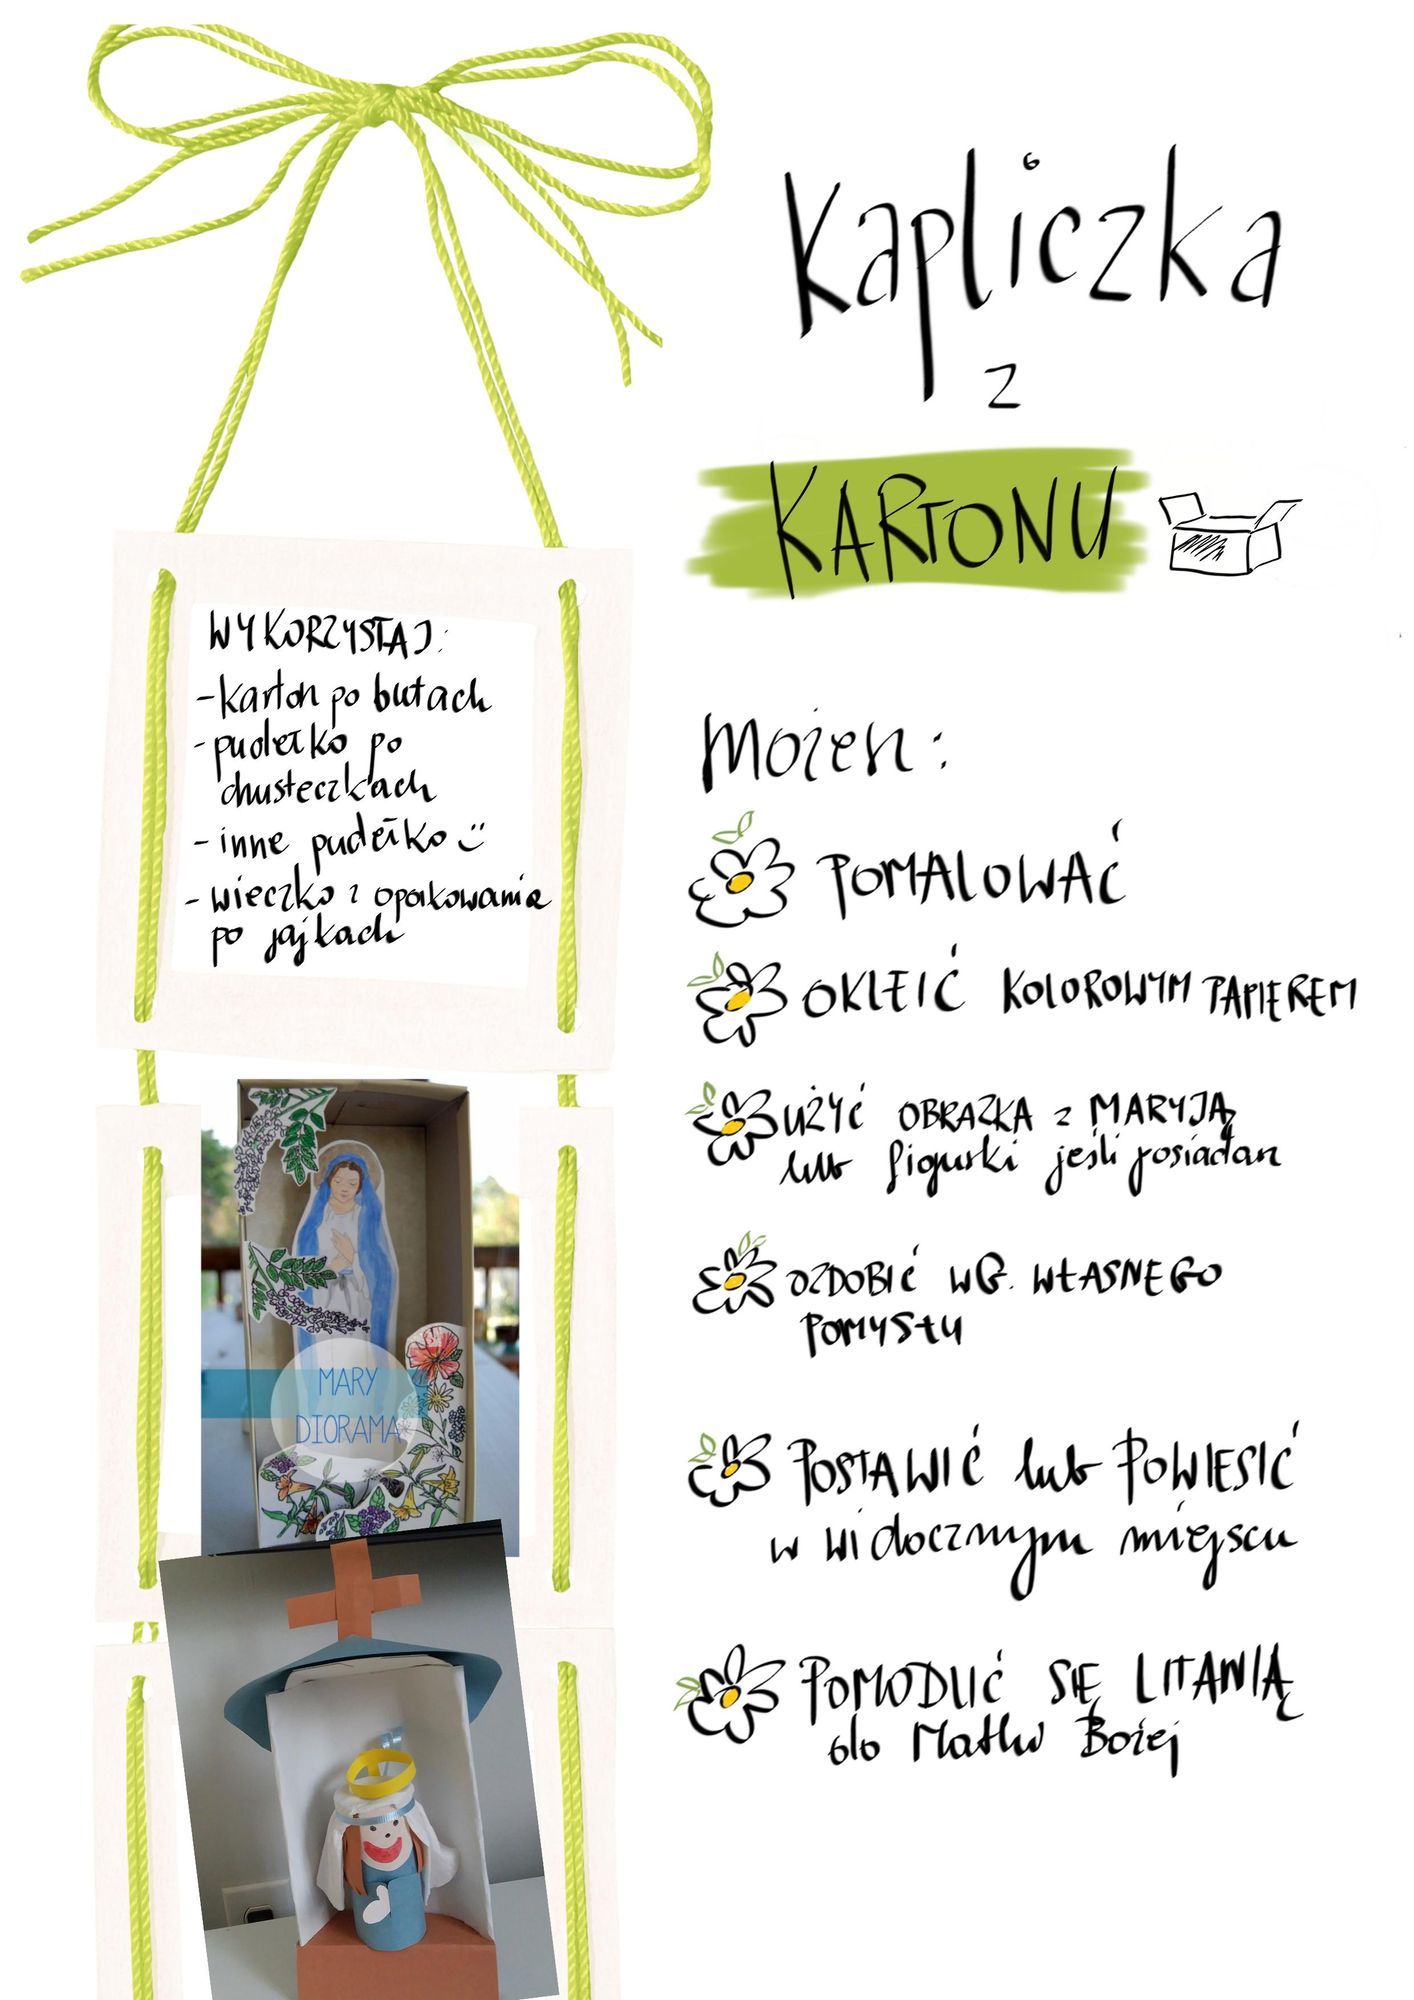 Kapliczka
z
KARTONU
WYKORZYSTAJ:
- karton po butach
- pudełko po
chusteczkach
- inne pudełko
- wieczko z opakowania
po jajkach
MARY
DIORAMA
możesz:
POMALOWAĆ
OKLEIĆ KOLOROWYM PAPIEREM
UŻYĆ OBRAZKA z MARYJĄ
lub figurki jeśli posiadasz
OZDOBIĆ WG. WŁASNEGO
POMYSŁU
POSTAWIĆ lub POWIESIĆ
w widocznym miejscu
POMODLIĆ SIĘ LITANIĄ
do Matki Bożej